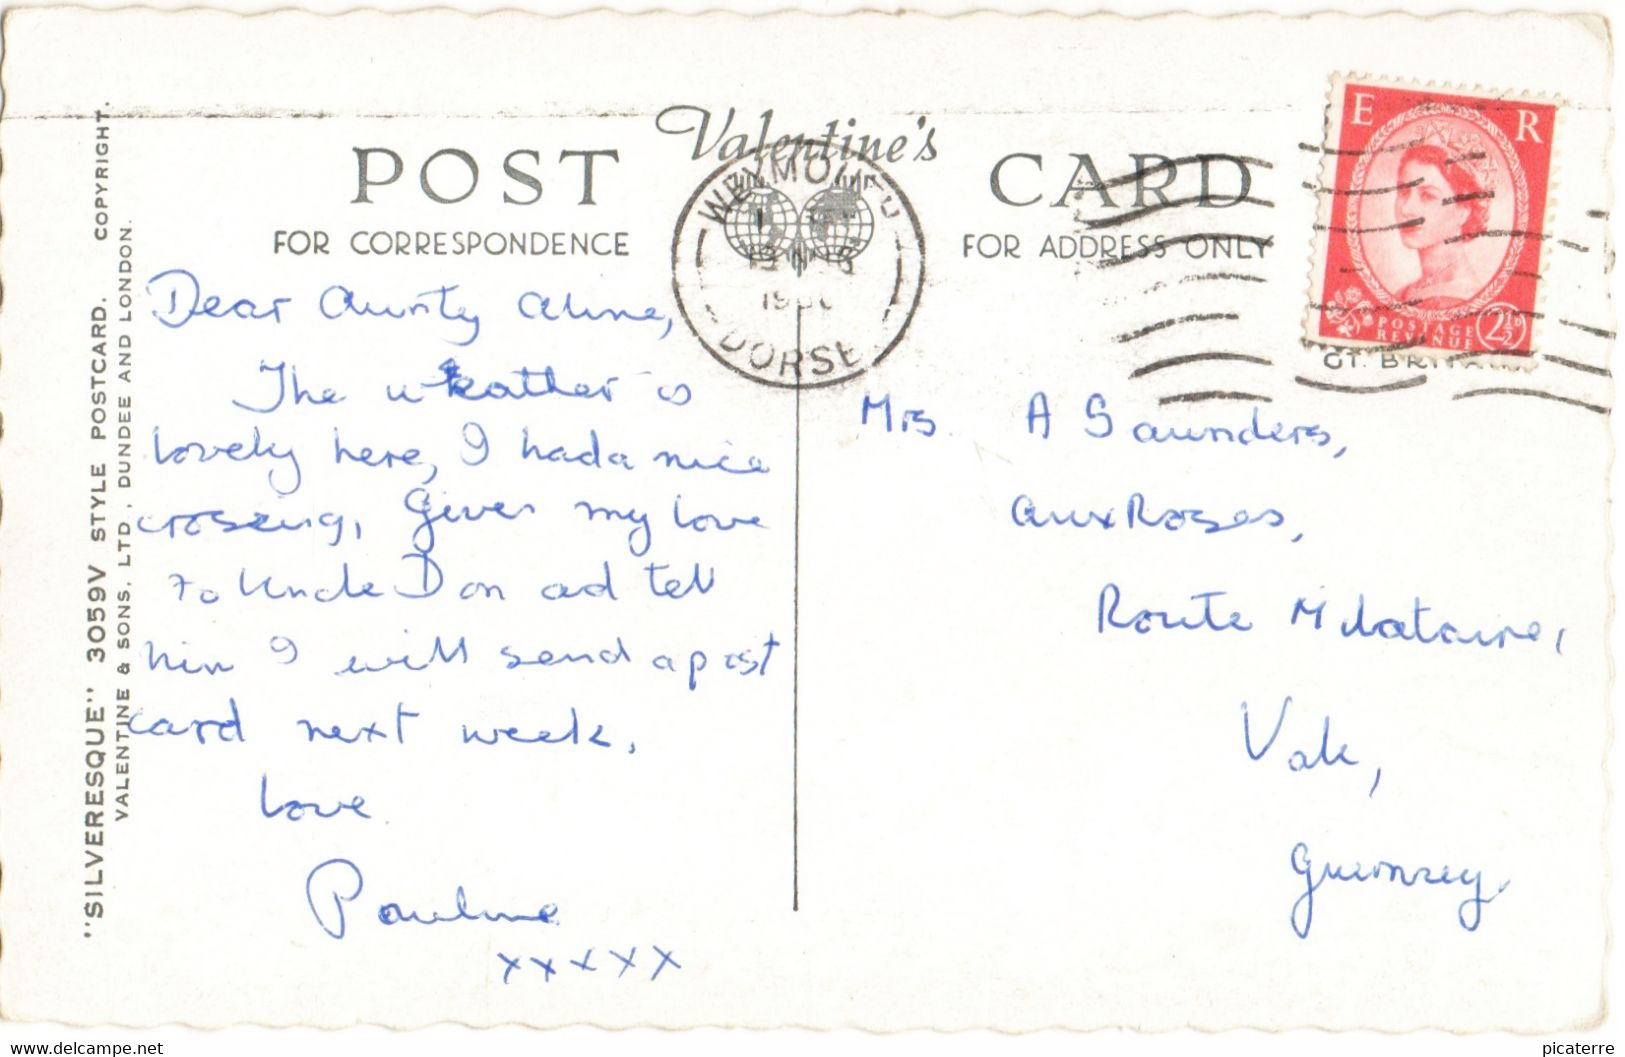 Valentine's
POST CARD
FOR CORRESPONDENCE
FOR ADDRESS ONLY
"SILVERESQUE" 3059V STYLE POSTCARD. COPYRIGHT.
VALENTINE & SONS, LTD., DUNDEE AND LONDON.
WEYMOUTH
DORSET
E R
POSTAGE
REVENUE
2½D
GT. BRITAIN
Dear Aunty Aline,
The weather is
lovely here, I had a nice
crossing, Given my love
to Uncle Don and tell
him I will send a post
card next week.
Love
Pauline
xxxxx
Mrs A Saunders,
Aux Roses,
Route Militaire,
Vale,
Guernsey
www.delcampe.net
picaterre